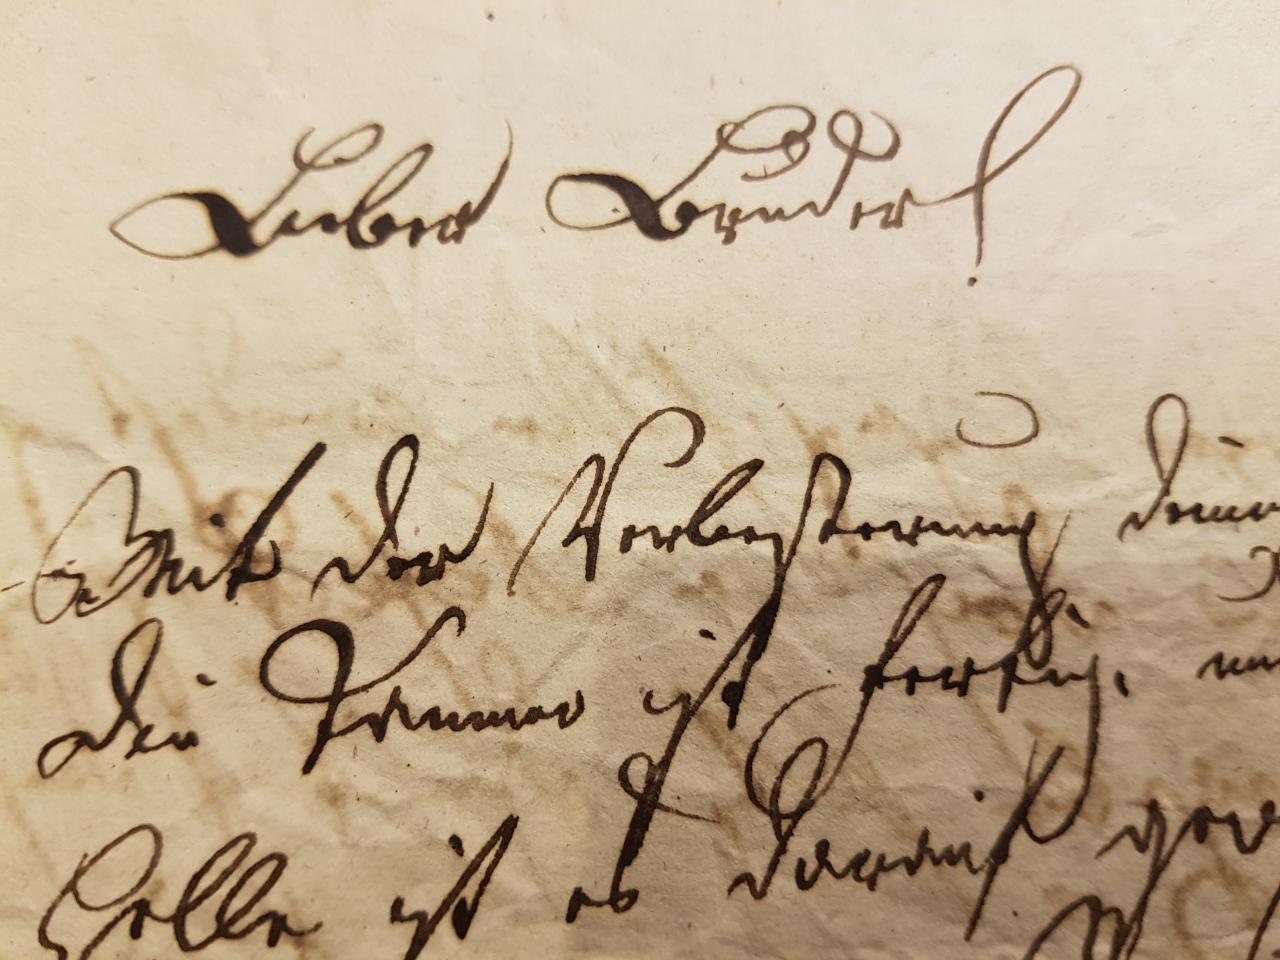 Lieber Bruder!
Mit der Verbesserung deiner
Die Kammer ist fertig.
Helle ist es darauf